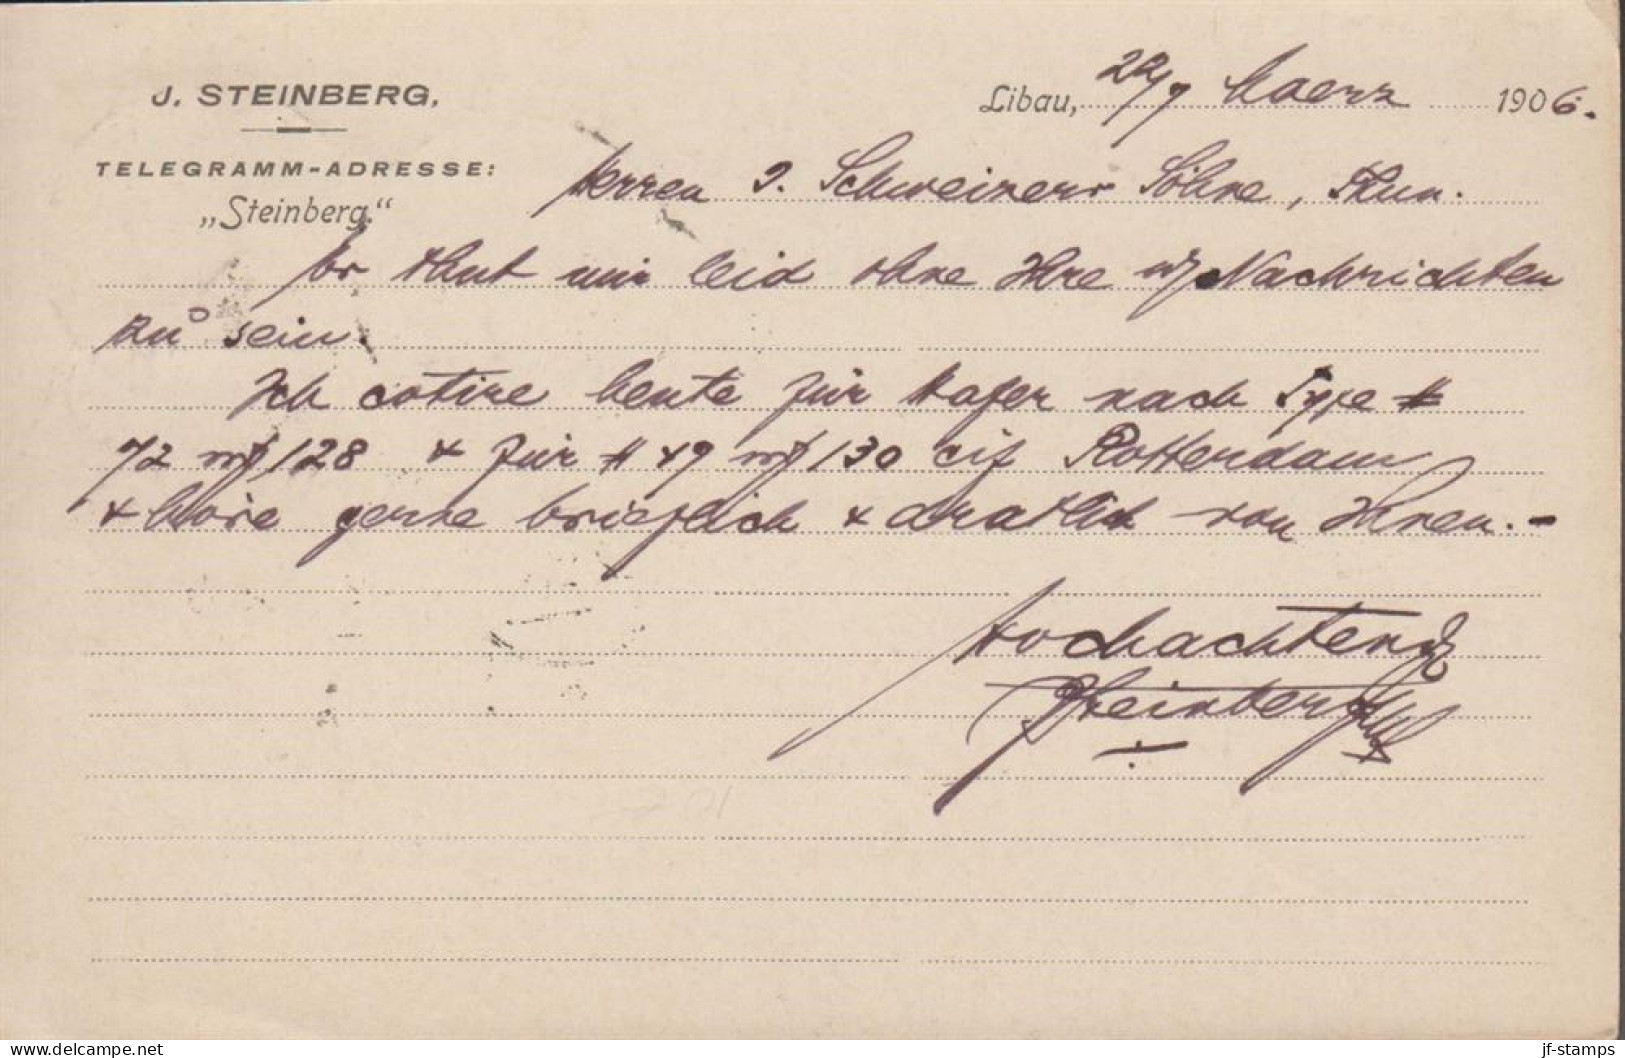 J. STEINBERG.
TELEGRAMM-ADRESSE:
„Steinberg."
Libau, 22/9 Maerz 1906.
Herren J. Schweizers Söhne, Thun.
Es thut mir leid ohne Ihre Nachrichten
zu sein.
Ich cotire heute für Hafer nach Type #
72 mk 128 & für # 49 mk 130 cif Rotterdam
& höre gerne brieflich & dratlich von Ihnen.-
Hochachtend
Steinberg
jf-stamps
www.delcampe.net